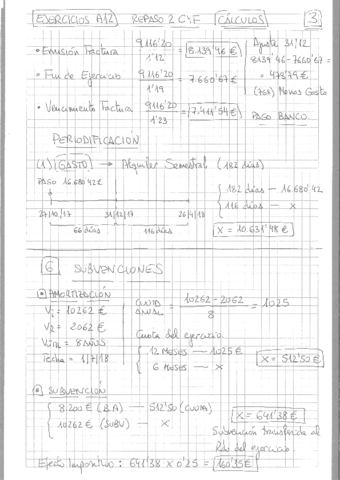 EJERCICIOS A12 REPASO 2 CYF CÁLCULOS 3
• Emisión Factura 9.116'20 / 1'12 = 8.139'46 €
Ajuste 31/12
8139'46 - 7660'67 =
= 478'79 €
(768) Menos Gasto
• Fin de Ejercicio 9.116'20 / 1'19 = 7.660'67 €
• Vencimiento Factura 9.116'20 / 1'23 = 7.411'54 €
PAGO BANCO
PERIODIFICACIÓN
(1) GASTO → Alquiler Semestral (182 días)
PAGO 16.680'42 €
182 días — 16.680'42
116 días — x
27/10/17 31/12/17 26/4/18
66 días 116 días
X = 10.631'48 €
6 SUBVENCIONES
AMORTIZACIÓN
Vi = 10262 €
VR = 2062 €
Vútil = 8 AÑOS
Fecha = 1/7/18
CUOTA ANUAL = 10262 - 2062 / 8 = 1025
Cuota del ejercicio
12 MESES — 1025 €
6 MESES — x
X = 512'50 €
SUBVENCIÓN
8200 € (B.A) — 512'50 (CUOTA)
10262 € (SUBV) — x
X = 641'38 €
Subvención transferida al
Rdo del ejercicio
Efecto Impositivo : 641'38 x 0'25 = 160'35 €